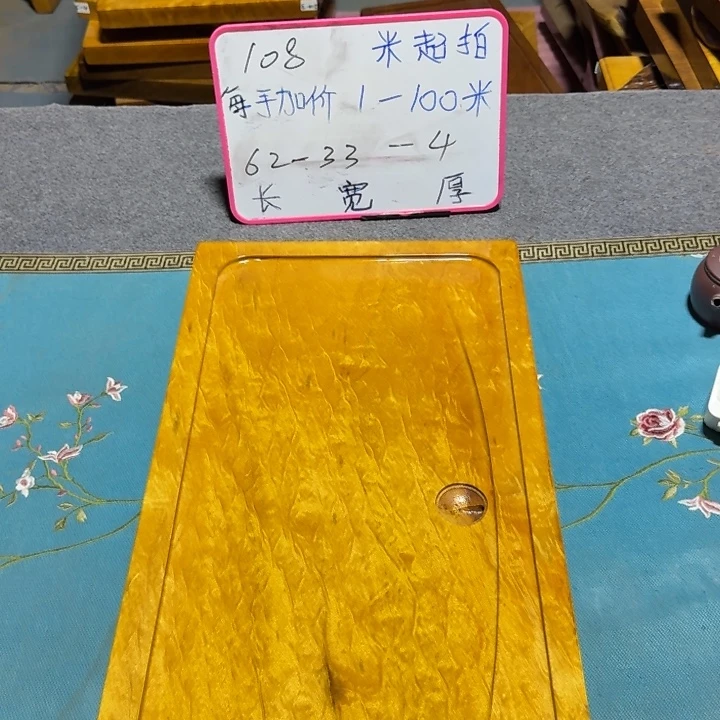 108 米起拍
每手加价1-100米
62-33-4
长 宽 厚